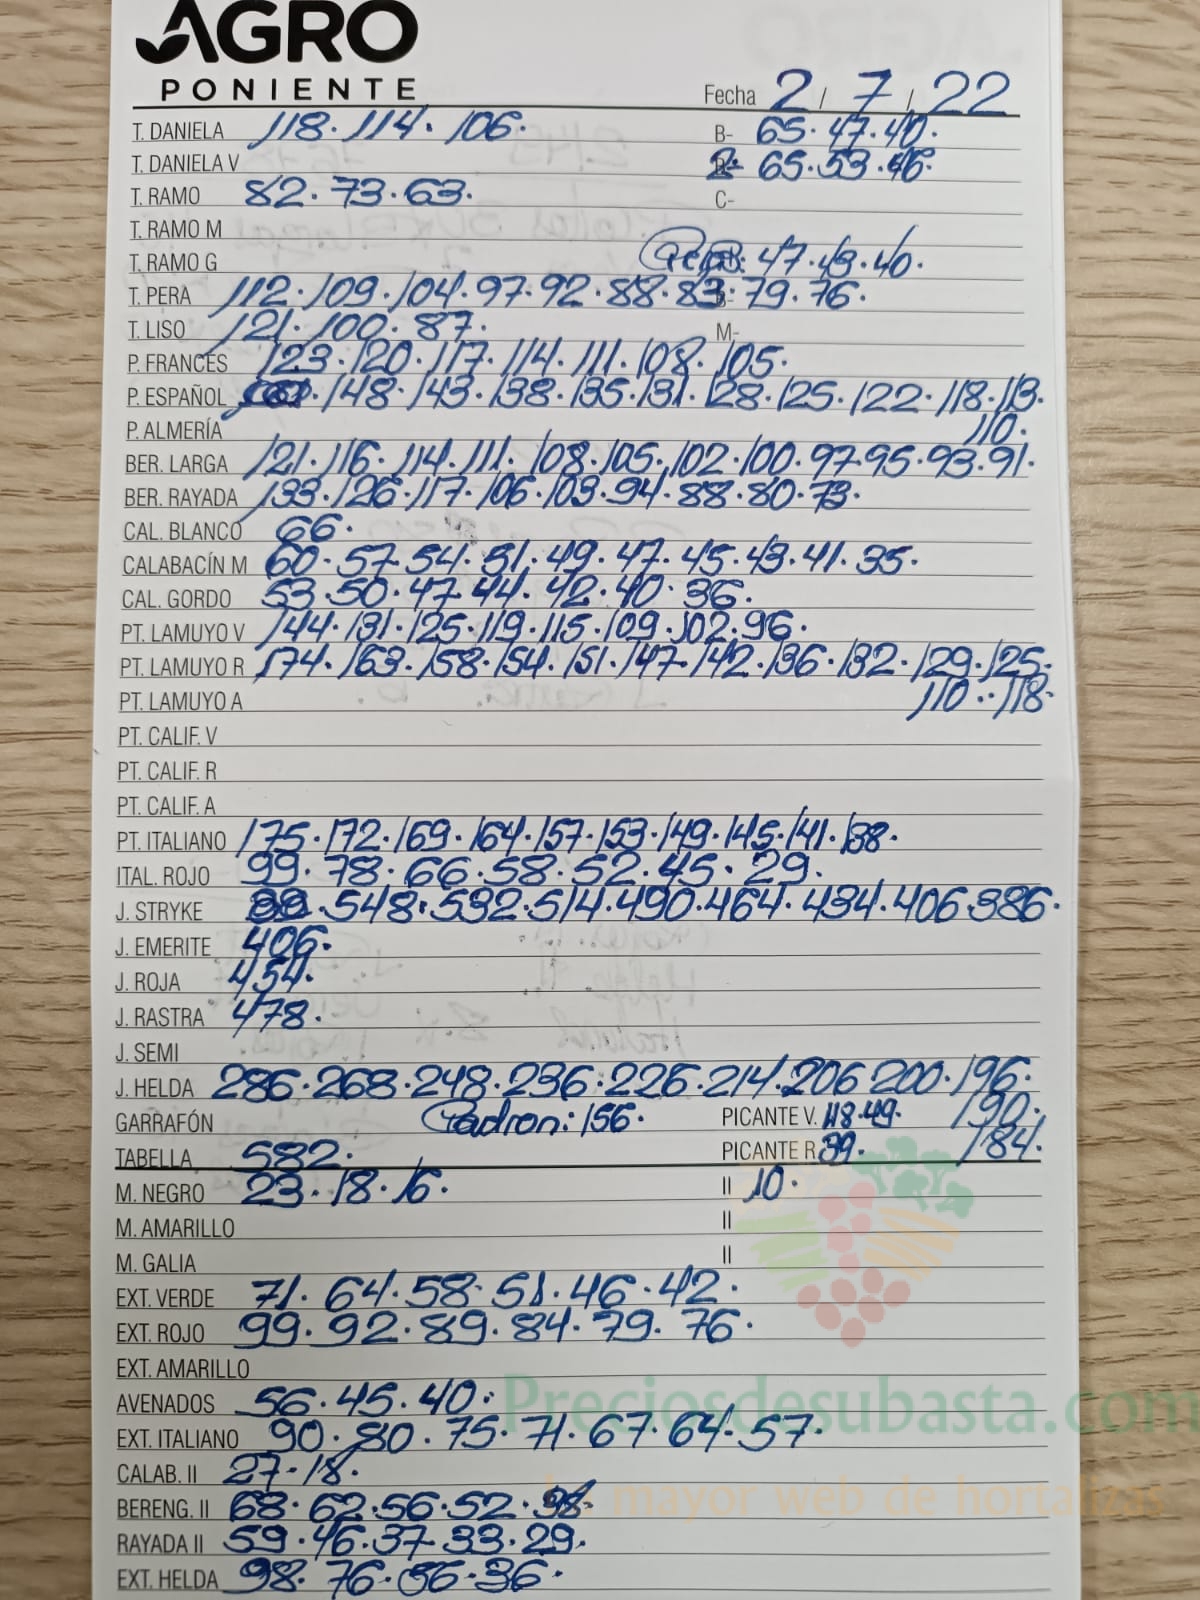 AGRO
PONIENTE
Fecha 2 / 7 / 22
T. DANIELA 118. 114. 106. B- 65. 47. 40.
T. DANIELA V 2ª 65. 53. 46.
T. RAMO 82. 73. 63. C-
T. RAMO M
T. RAMO G 47. 43. 40.
T. PERA 112. 109. 104. 97. 92. 88. 83. 79. 76.
T. LISO 121. 100. 87. M-
P. FRANCÉS 123. 120. 117. 114. 111. 108. 105.
P. ESPAÑOL 148. 143. 138. 135. 131. 128. 125. 122. 118. 113.
P. ALMERÍA 110.
BER. LARGA 121. 116. 114. 111. 108. 105. 102. 100. 97. 95. 93. 91.
BER. RAYADA 133. 126. 117. 106. 103. 94. 88. 80. 73.
CAL. BLANCO 66.
CALABACÍN M 60. 57. 54. 51. 49. 47. 45. 43. 41. 35.
CAL. GORDO 53. 50. 47. 44. 42. 40. 36.
PT. LAMUYO V 144. 131. 125. 119. 115. 109. 102. 96.
PT. LAMUYO R 174. 163. 158. 154. 151. 147. 142. 136. 132. 129. 125.
PT. LAMUYO A 110. 118.
PT. CALIF. V
PT. CALIF. R
PT. CALIF. A
PT. ITALIANO 175. 172. 169. 164. 157. 153. 149. 145. 141. 138.
ITAL. ROJO 99. 78. 66. 58. 52. 45. 29.
J. STRYKE 548. 532. 514. 490. 464. 434. 406. 386.
J. EMERITE 406.
J. ROJA 454.
J. RASTRA 478.
J. SEMI
J. HELDA 286. 268. 248. 236. 226. 214. 206 200. 196.
GARRAFÓN Padron: 156. PICANTE V. 118. 49. 190.
TABELLA 582. PICANTE R 39. 184.
M. NEGRO 23. 18. 16. II 10.
M. AMARILLO II
M. GALIA II
EXT. VERDE 71. 64. 58. 51. 46. 42.
EXT. ROJO 99. 92. 89. 84. 79. 76.
EXT. AMARILLO
AVENADOS 56. 45. 40.
Preciosdesubasta.com
EXT. ITALIANO 90. 80. 75. 71. 67. 64. 57.
CALAB. II 27. 18.
mayor web de hortalizas
BERENG. II 68. 62. 56. 52.
RAYADA II 59. 46. 37. 33. 29.
EXT. HELDA 98. 76. 56. 36.